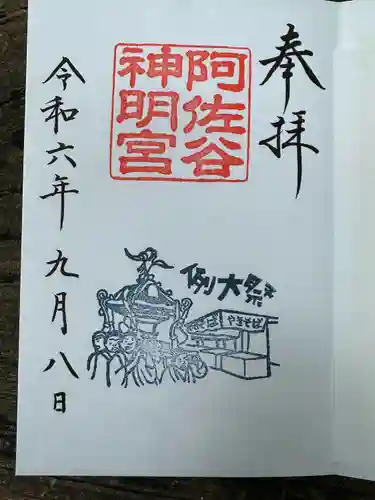 奉拝
阿佐谷
神明宮
令和六年九月八日
例大祭
やきそば